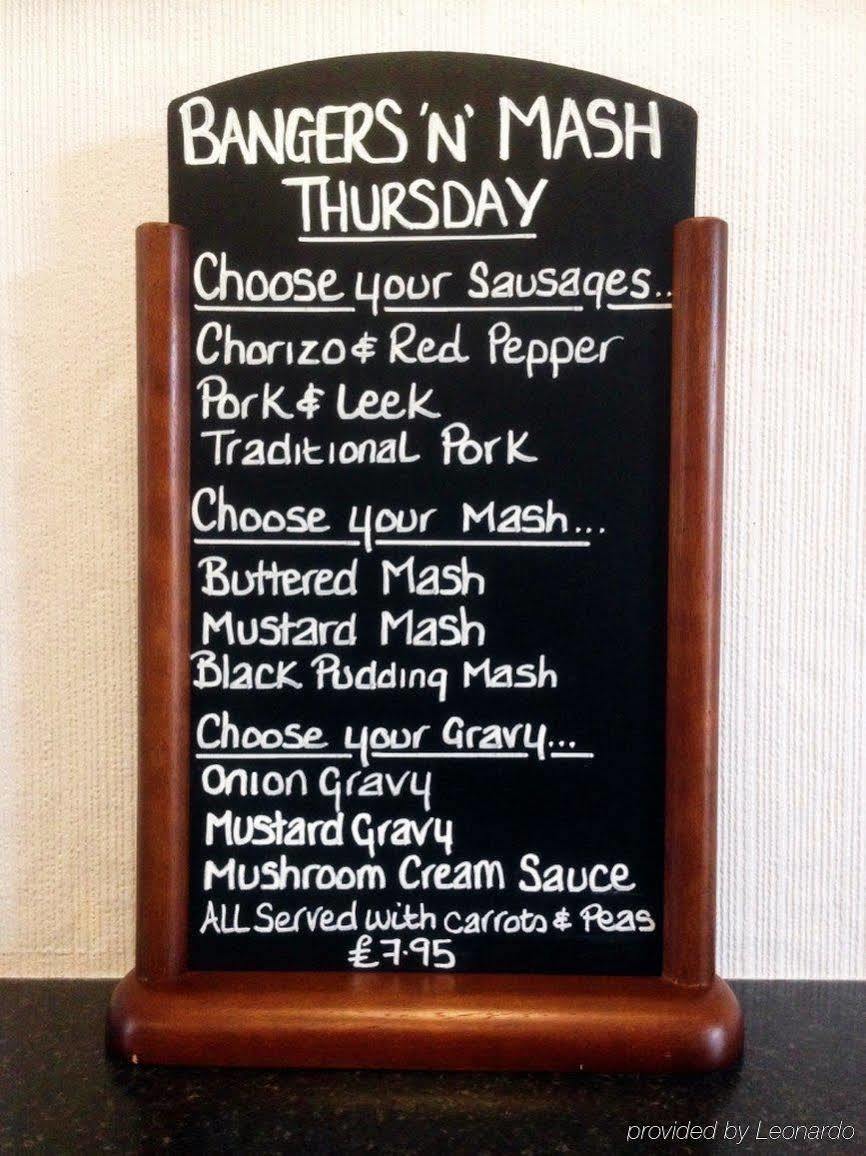 BANGERS 'N' MASH
THURSDAY
Choose your Sausages..
Chorizo & Red Pepper
Pork & Leek
Traditional Pork
Choose your Mash...
Buttered Mash
Mustard Mash
Black Pudding Mash
Choose your Gravy...
Onion Gravy
Mustard Gravy
Mushroom Cream Sauce
ALL Served with carrots & Peas
£7.95
provided by Leonardo